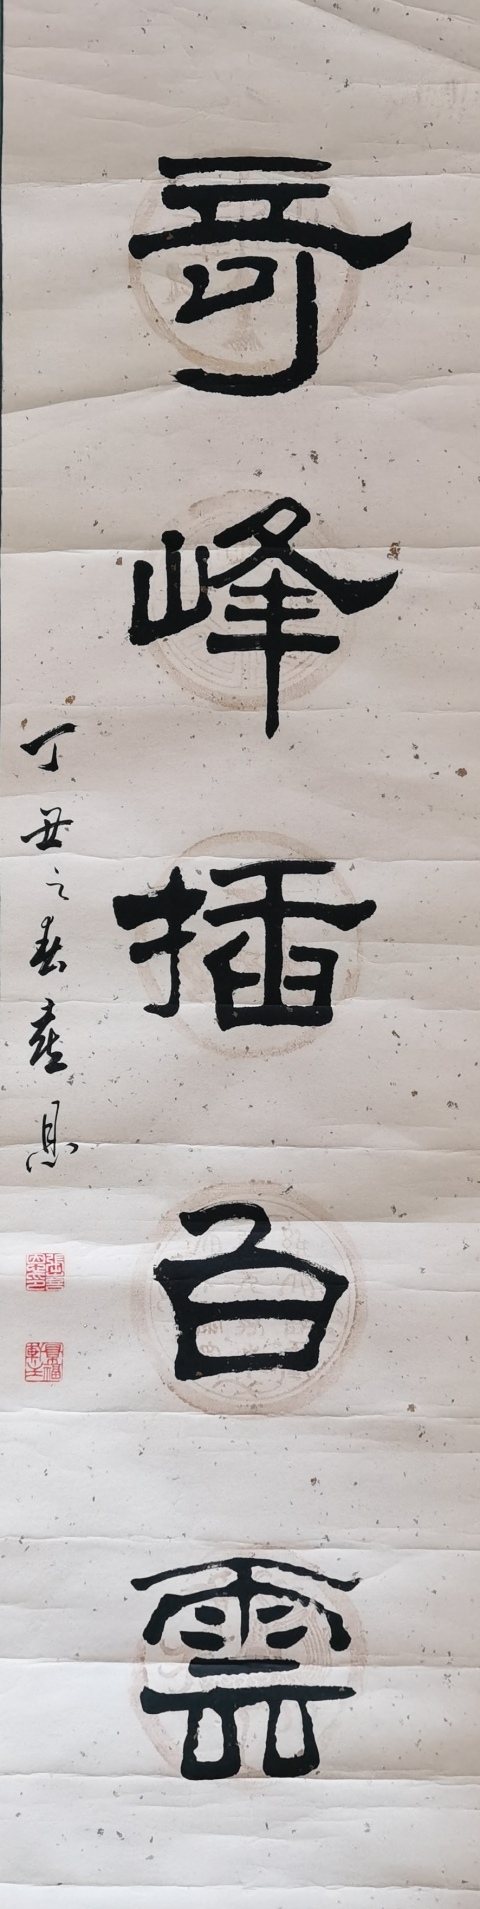 奇峰插白雲
丁丑之春